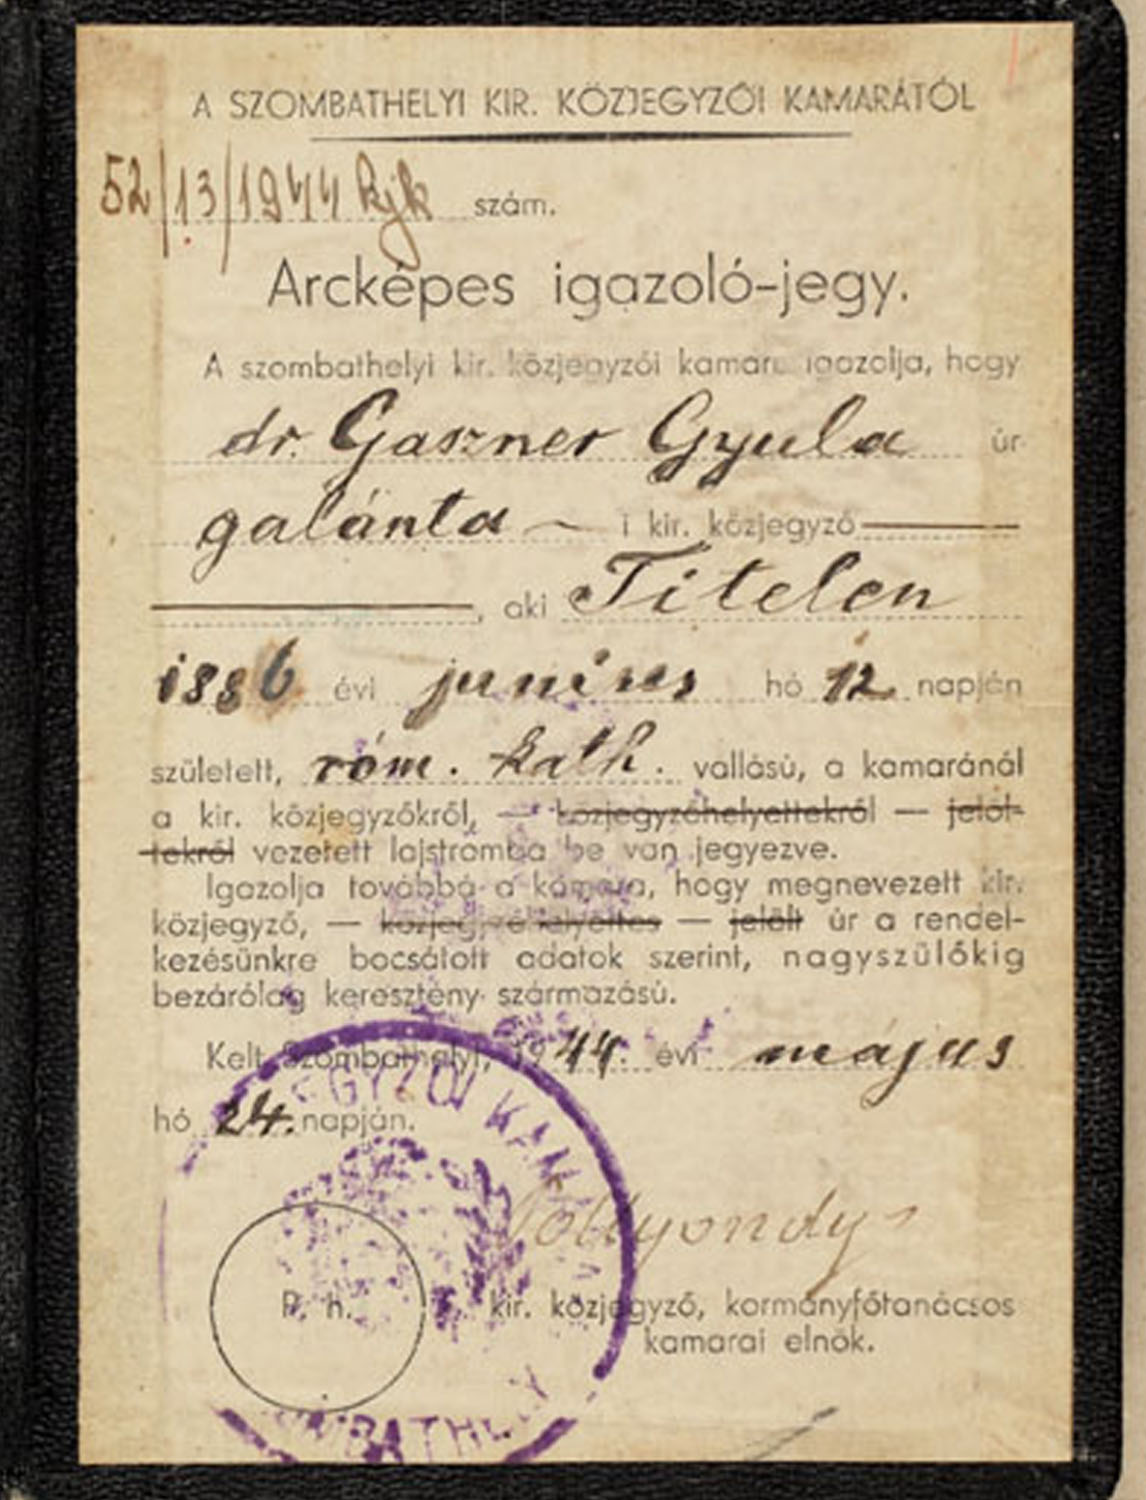 A SZOMBATHELYI KIR. KÖZJEGYZŐI KAMARÁTÓL
52/13/1944 kjk szám.
Arcképes igazoló-jegy.
A szombathelyi kir. közjegyzői kamara igazolja, hogy
dr. Gaszner Gyula úr
galánta — i kir. közjegyző
, aki Titelen
1886 évi junius hó 12 napján
született, róm. kath. vallású, a kamaránál
a kir. közjegyzőkről, — közjegyzőhelyettekről — jelöl-
tekről vezetett lajstromba be van jegyezve.
Igazolja továbbá a kamara, hogy megnevezett kir.
közjegyző, — közjegyzőhelyettes — jelölt úr a rendel-
kezésünkre bocsátott adatok szerint, nagyszülőkig
bezárólag keresztény származású.
Kelt Szombathelyt, 1944. évi május
hó 24. napján.
P. h.
kir. közjegyző, kormányfőtanácsos
kamarai elnök.